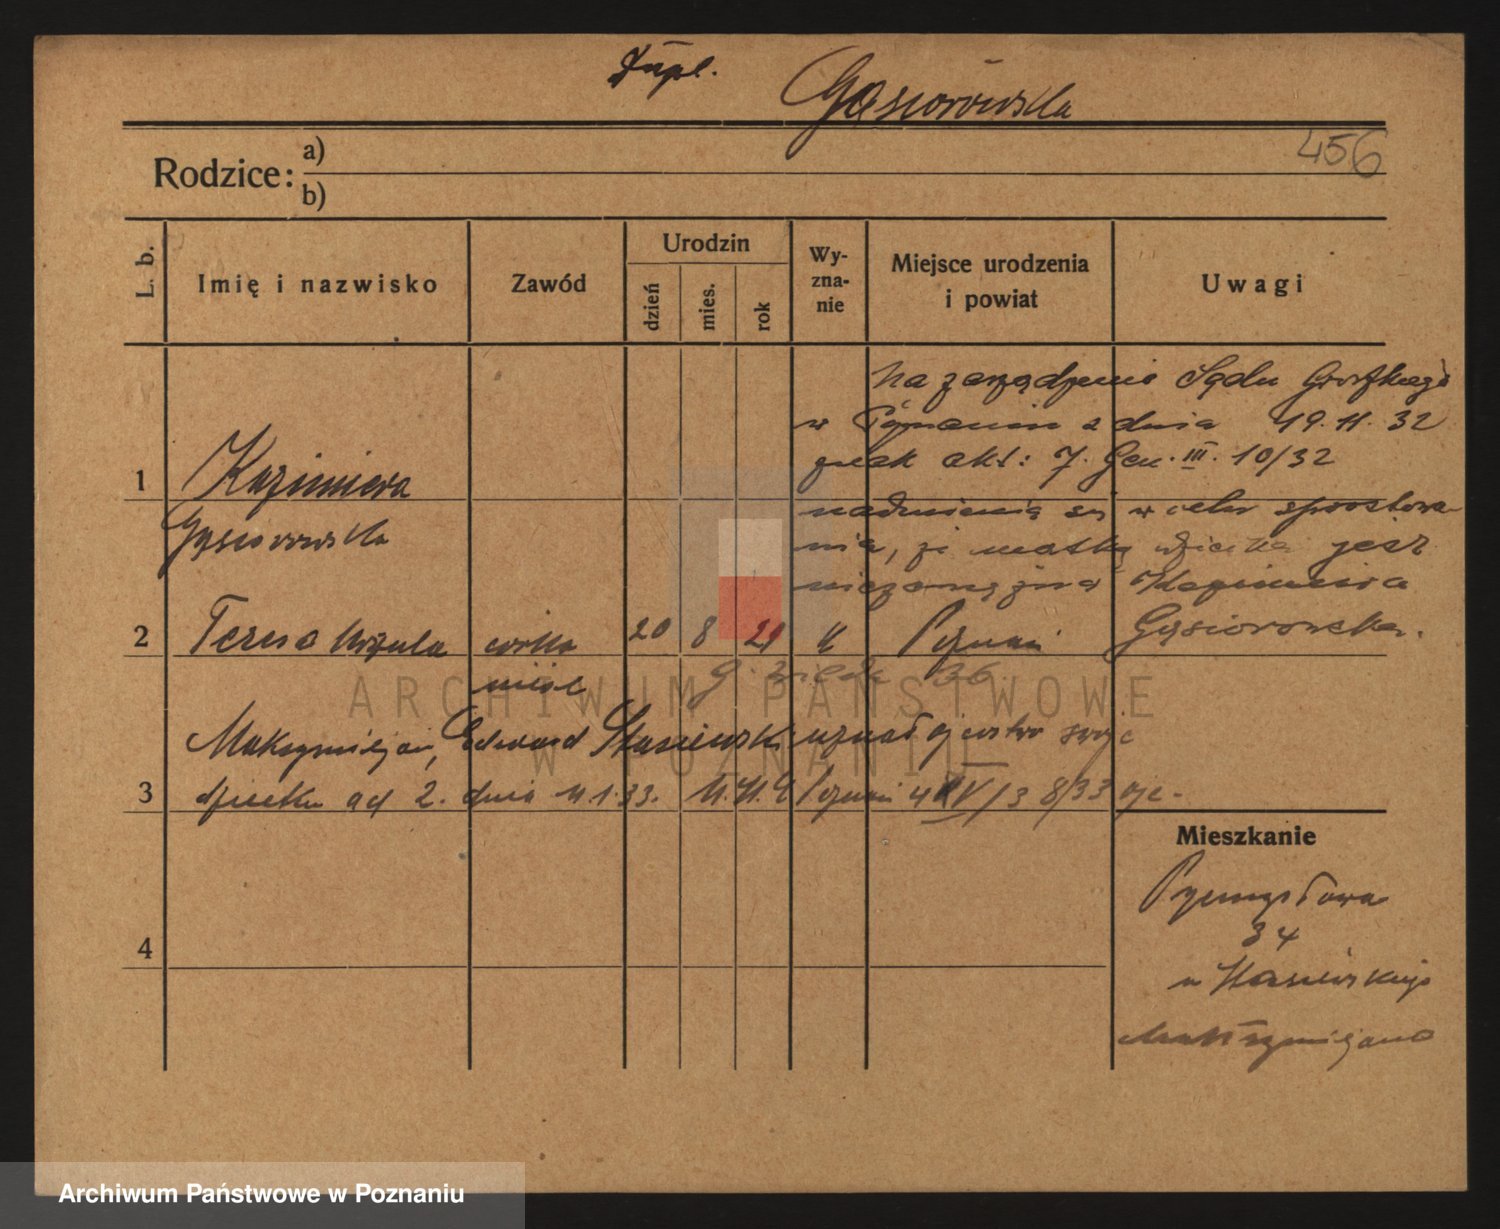 Dupl. Gąsiorowska
456
Rodzice:
a)
b)
L. b.
Imię i nazwisko
Zawód
Urodzin
dzień
mies.
rok
Wy-
zna-
nie
Miejsce urodzenia
i powiat
Uwagi
Na zarządzenie Sądu Grodzkiego
w Poznaniu z dnia 19.11.32
znak akt: 7. Gen. III. 10/32
1 Kazimiera
Gąsiorowska
nadmienia się w celu sprostowa-
nia, że matką dziecka jest
niezamężna Kazimiera
Gąsiorowska.
2 Teresa Urszula córka 20 8 21 k Poznań
nieśl
36
Maksymiljan, Edward Stasiewski uznał ojcostwo swoje
3 dziecka ad 2. dnia 11.1.33. Poznań 8/33
4
Mieszkanie
Przemysłowa
34
u Stasiewskiego
Maksymiljana
ARCHIWUM PAŃSTWOWE
W POZNANIU
Archiwum Państwowe w Poznaniu